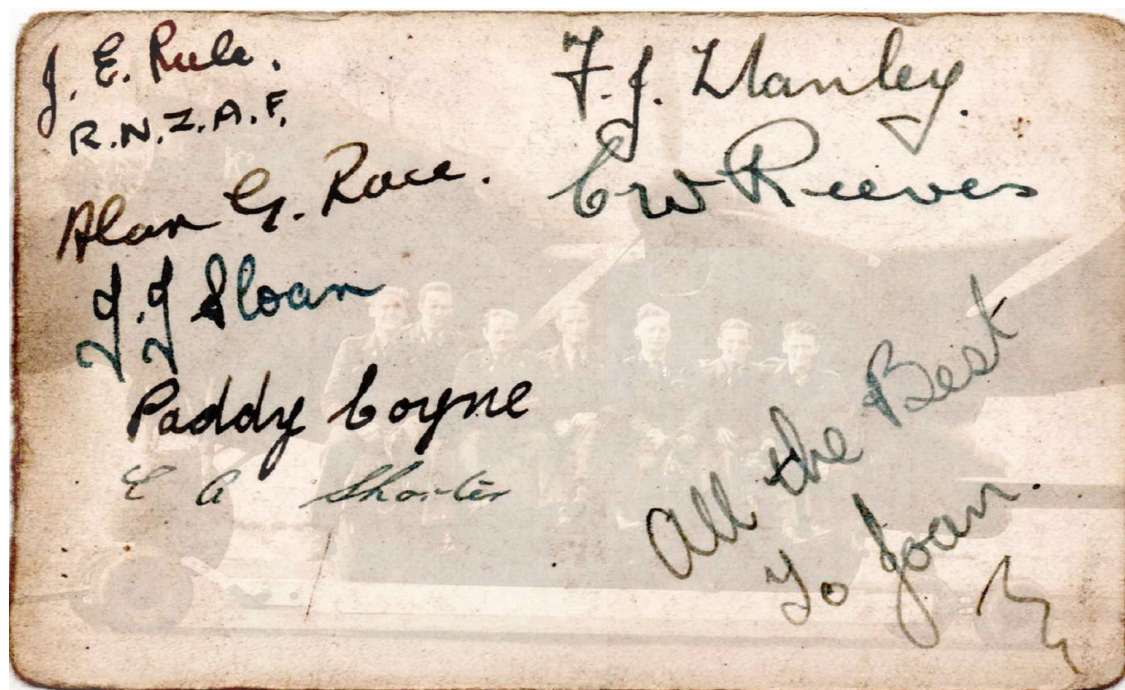 J. E. Rule.
R.N.Z.A.F.
Alan G. Race.
J.J Sloan
Paddy Coyne
E A Shorter
F.J. Stanley.
C W Reeves
All the Best
To Joan.